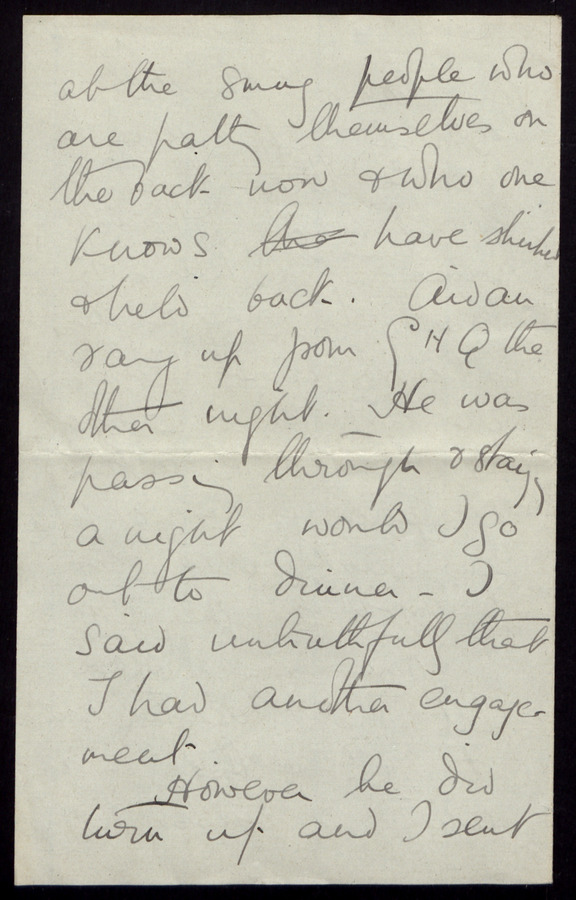 at the smug people who
are pattg themselves on
the back now & who one
knows who have shirked
& held back. Aidan
rang up from GHQ the
other night. He was
passing through & stayg
a night would I go
out to dinner - I
said untruthfully that
I had another engage-
ment.
However he did
turn up and I sent